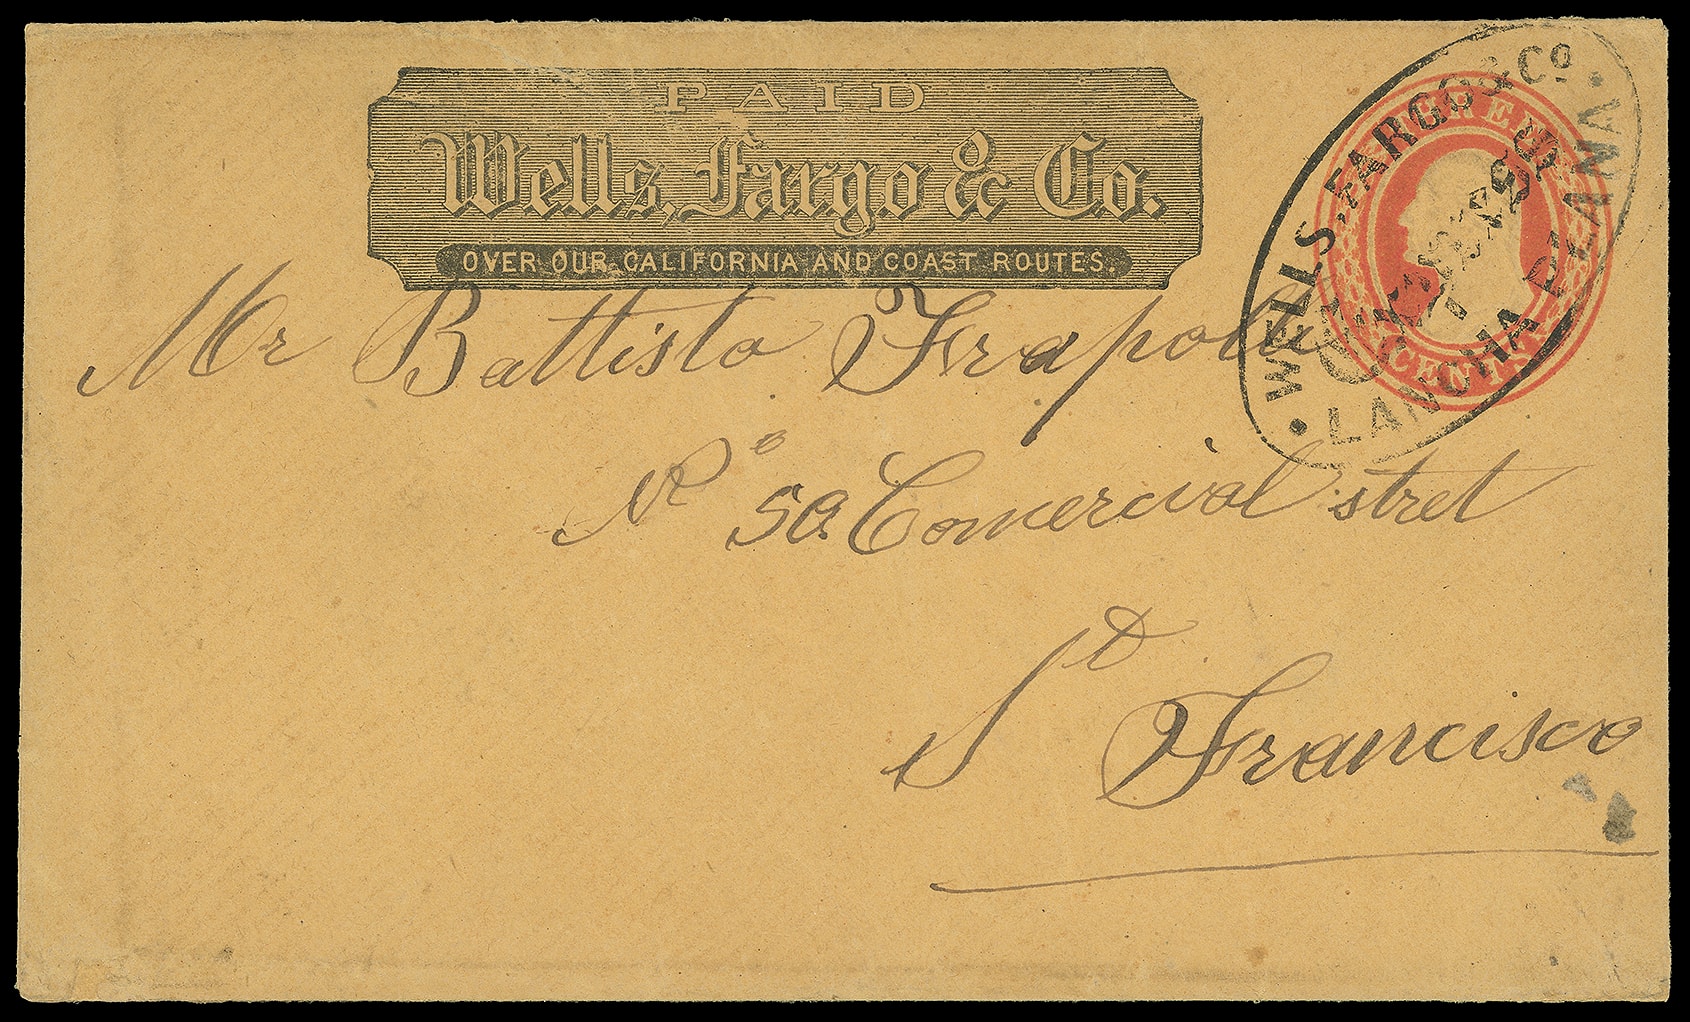 PAID
Wells, Fargo & Co.
OVER OUR CALIFORNIA AND COAST ROUTES.
WELLS. FARGO & Co
LANCHA PLANA
THREE
CENTS
Mr Battista Frapolli
No 50. Comercial stret
St Francisco